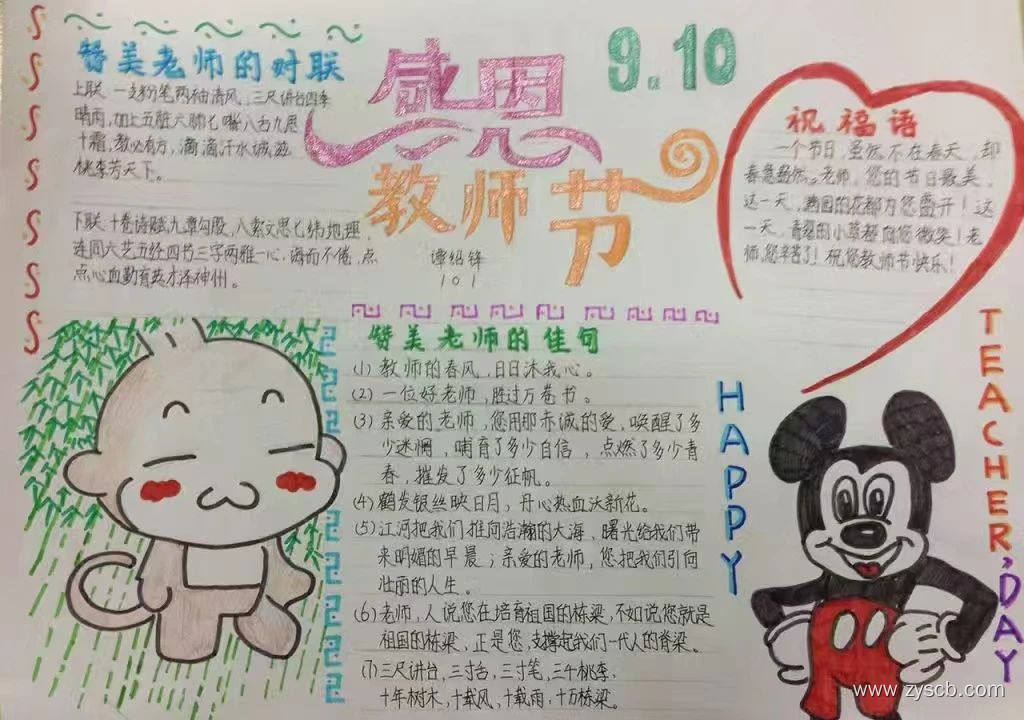 赞美老师的对联
上联 一支粉笔两袖清风，三尺讲台四季
晴雨，加上五脏六腑七嘴八舌九思
十霜，教必有方，滴滴汗水诚滋
桃李芳天下。
下联 十卷诗赋九章勾股，八索文思七纬地理，
连同六艺五经四节三字两雅一心，诲而不倦，点
点心血勤育英才泽神州。
感恩
教师节
谭绍锋
101
9.10
祝福语
一个节日，虽然不在春天，却
春意盎然。老师，您的节日最美，
这一天，满园的花都为您盛开！这
一天，青翠的小草都向您微笑！老
师，您辛苦了！祝您教师节快乐！
赞美老师的佳句
(1) 教师的春风，日日沐我心。
(2) 一位好老师，胜过万卷书。
(3) 亲爱的老师，您用那赤诚的爱，唤醒了多
少迷惘，哺育了多少自信，点燃了多少青
春，摧发了多少征帆。
(4) 鹤发银丝映日月，丹心热血沃新花。
(5) 江河把我们推向浩瀚的大海，曙光给我们带
来明媚的早晨；亲爱的老师，您把我们引向
壮丽的人生。
(6) 老师，人说您在培育祖国的栋梁，不如说您就是
祖国的栋梁，正是您，支撑起我们一代人的脊梁。
(7) 三尺讲台，三寸舌，三寸笔，三千桃李，
十年树木，十载风，十载雨，十万栋梁。
HAPPY
TEACHER'DAY
www.zyscb.com